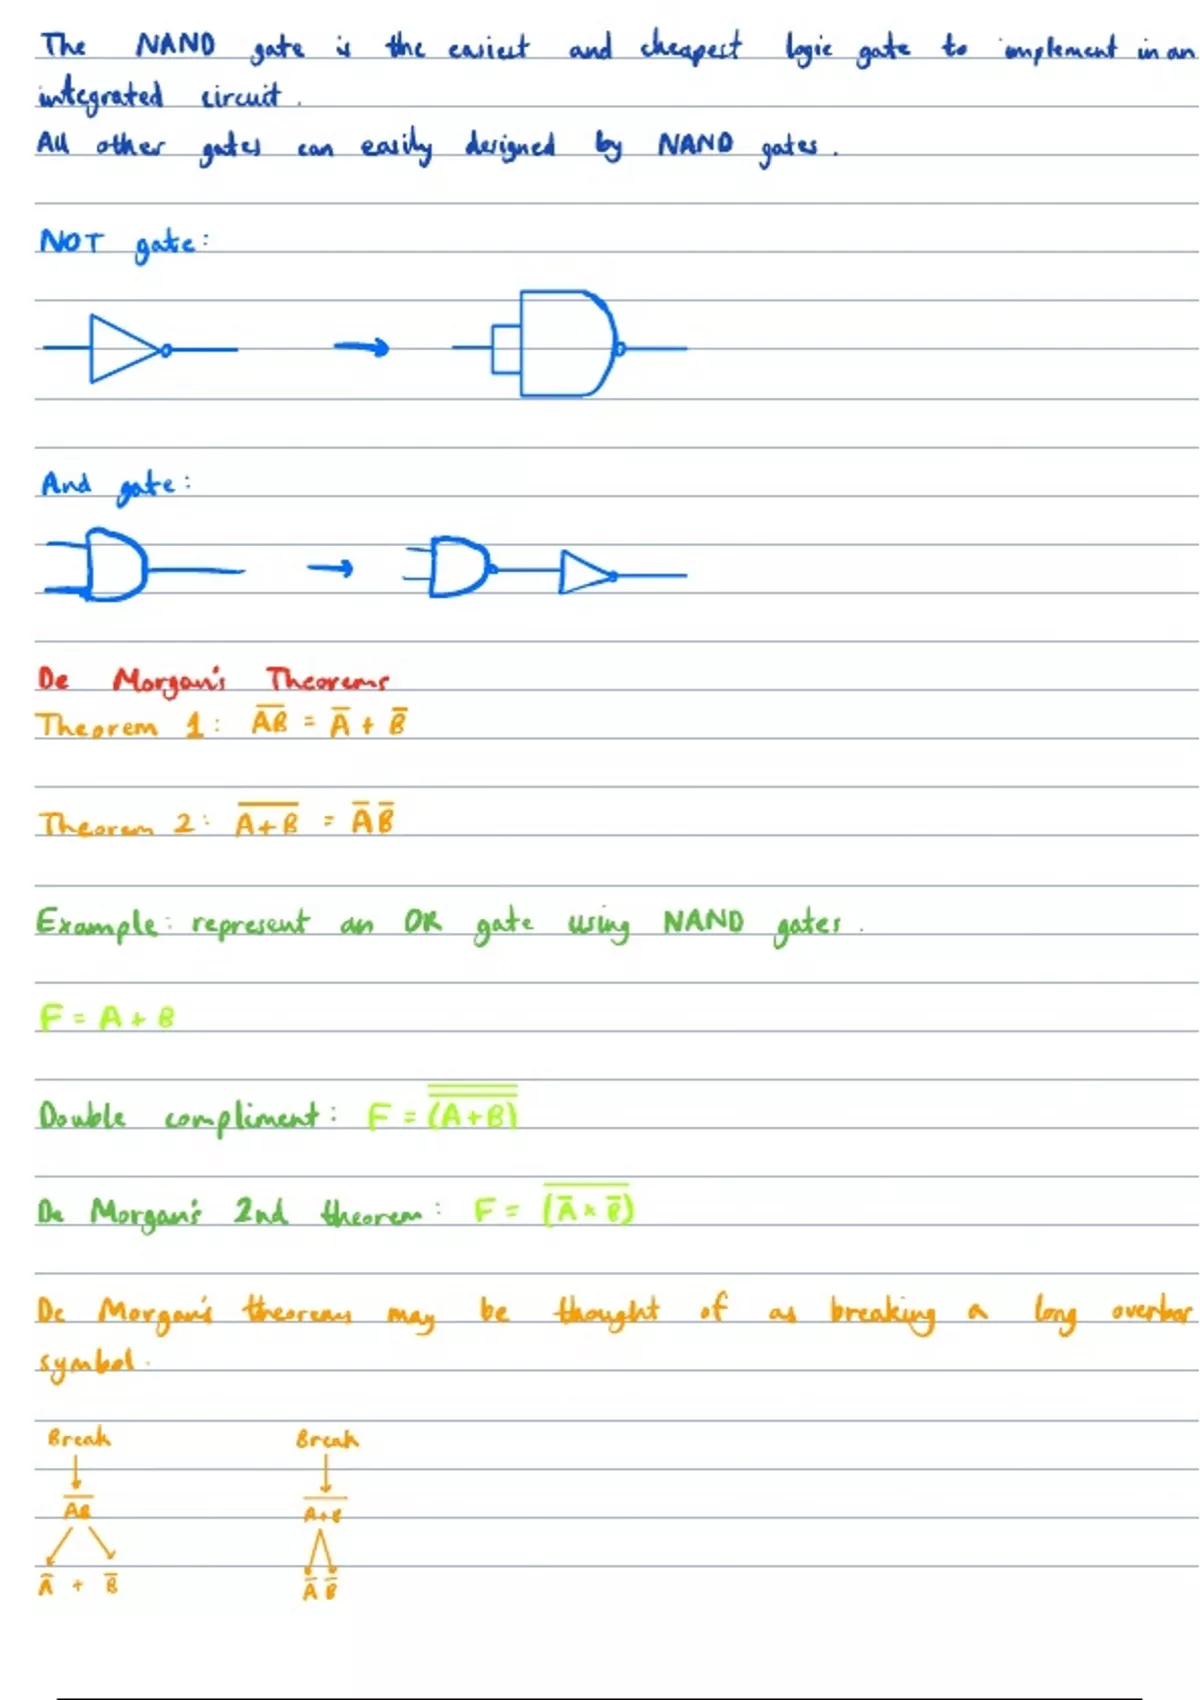 The NAND gate is the easiest and cheapest logic gate to implement in an
integrated circuit.
All other gates can easily designed by NAND gates.
NOT gate:
And gate:
De Morgan's Theorems
Theorem 1: A̅B̅ = A̅ + B̅
Theorem 2: A̅+̅B̅ = A̅ B̅
Example: represent an OR gate using NAND gates.
F = A + B
Double compliment: F = \overline{\overline{(A+B)}}
De Morgan's 2nd theorem: F = \overline{(A̅ × B̅)}
De Morgan's theorems may be thought of as breaking a long overbar
symbol.
Break Break
A̅B̅ A̅+̅B̅
A̅ + B̅ A̅ B̅